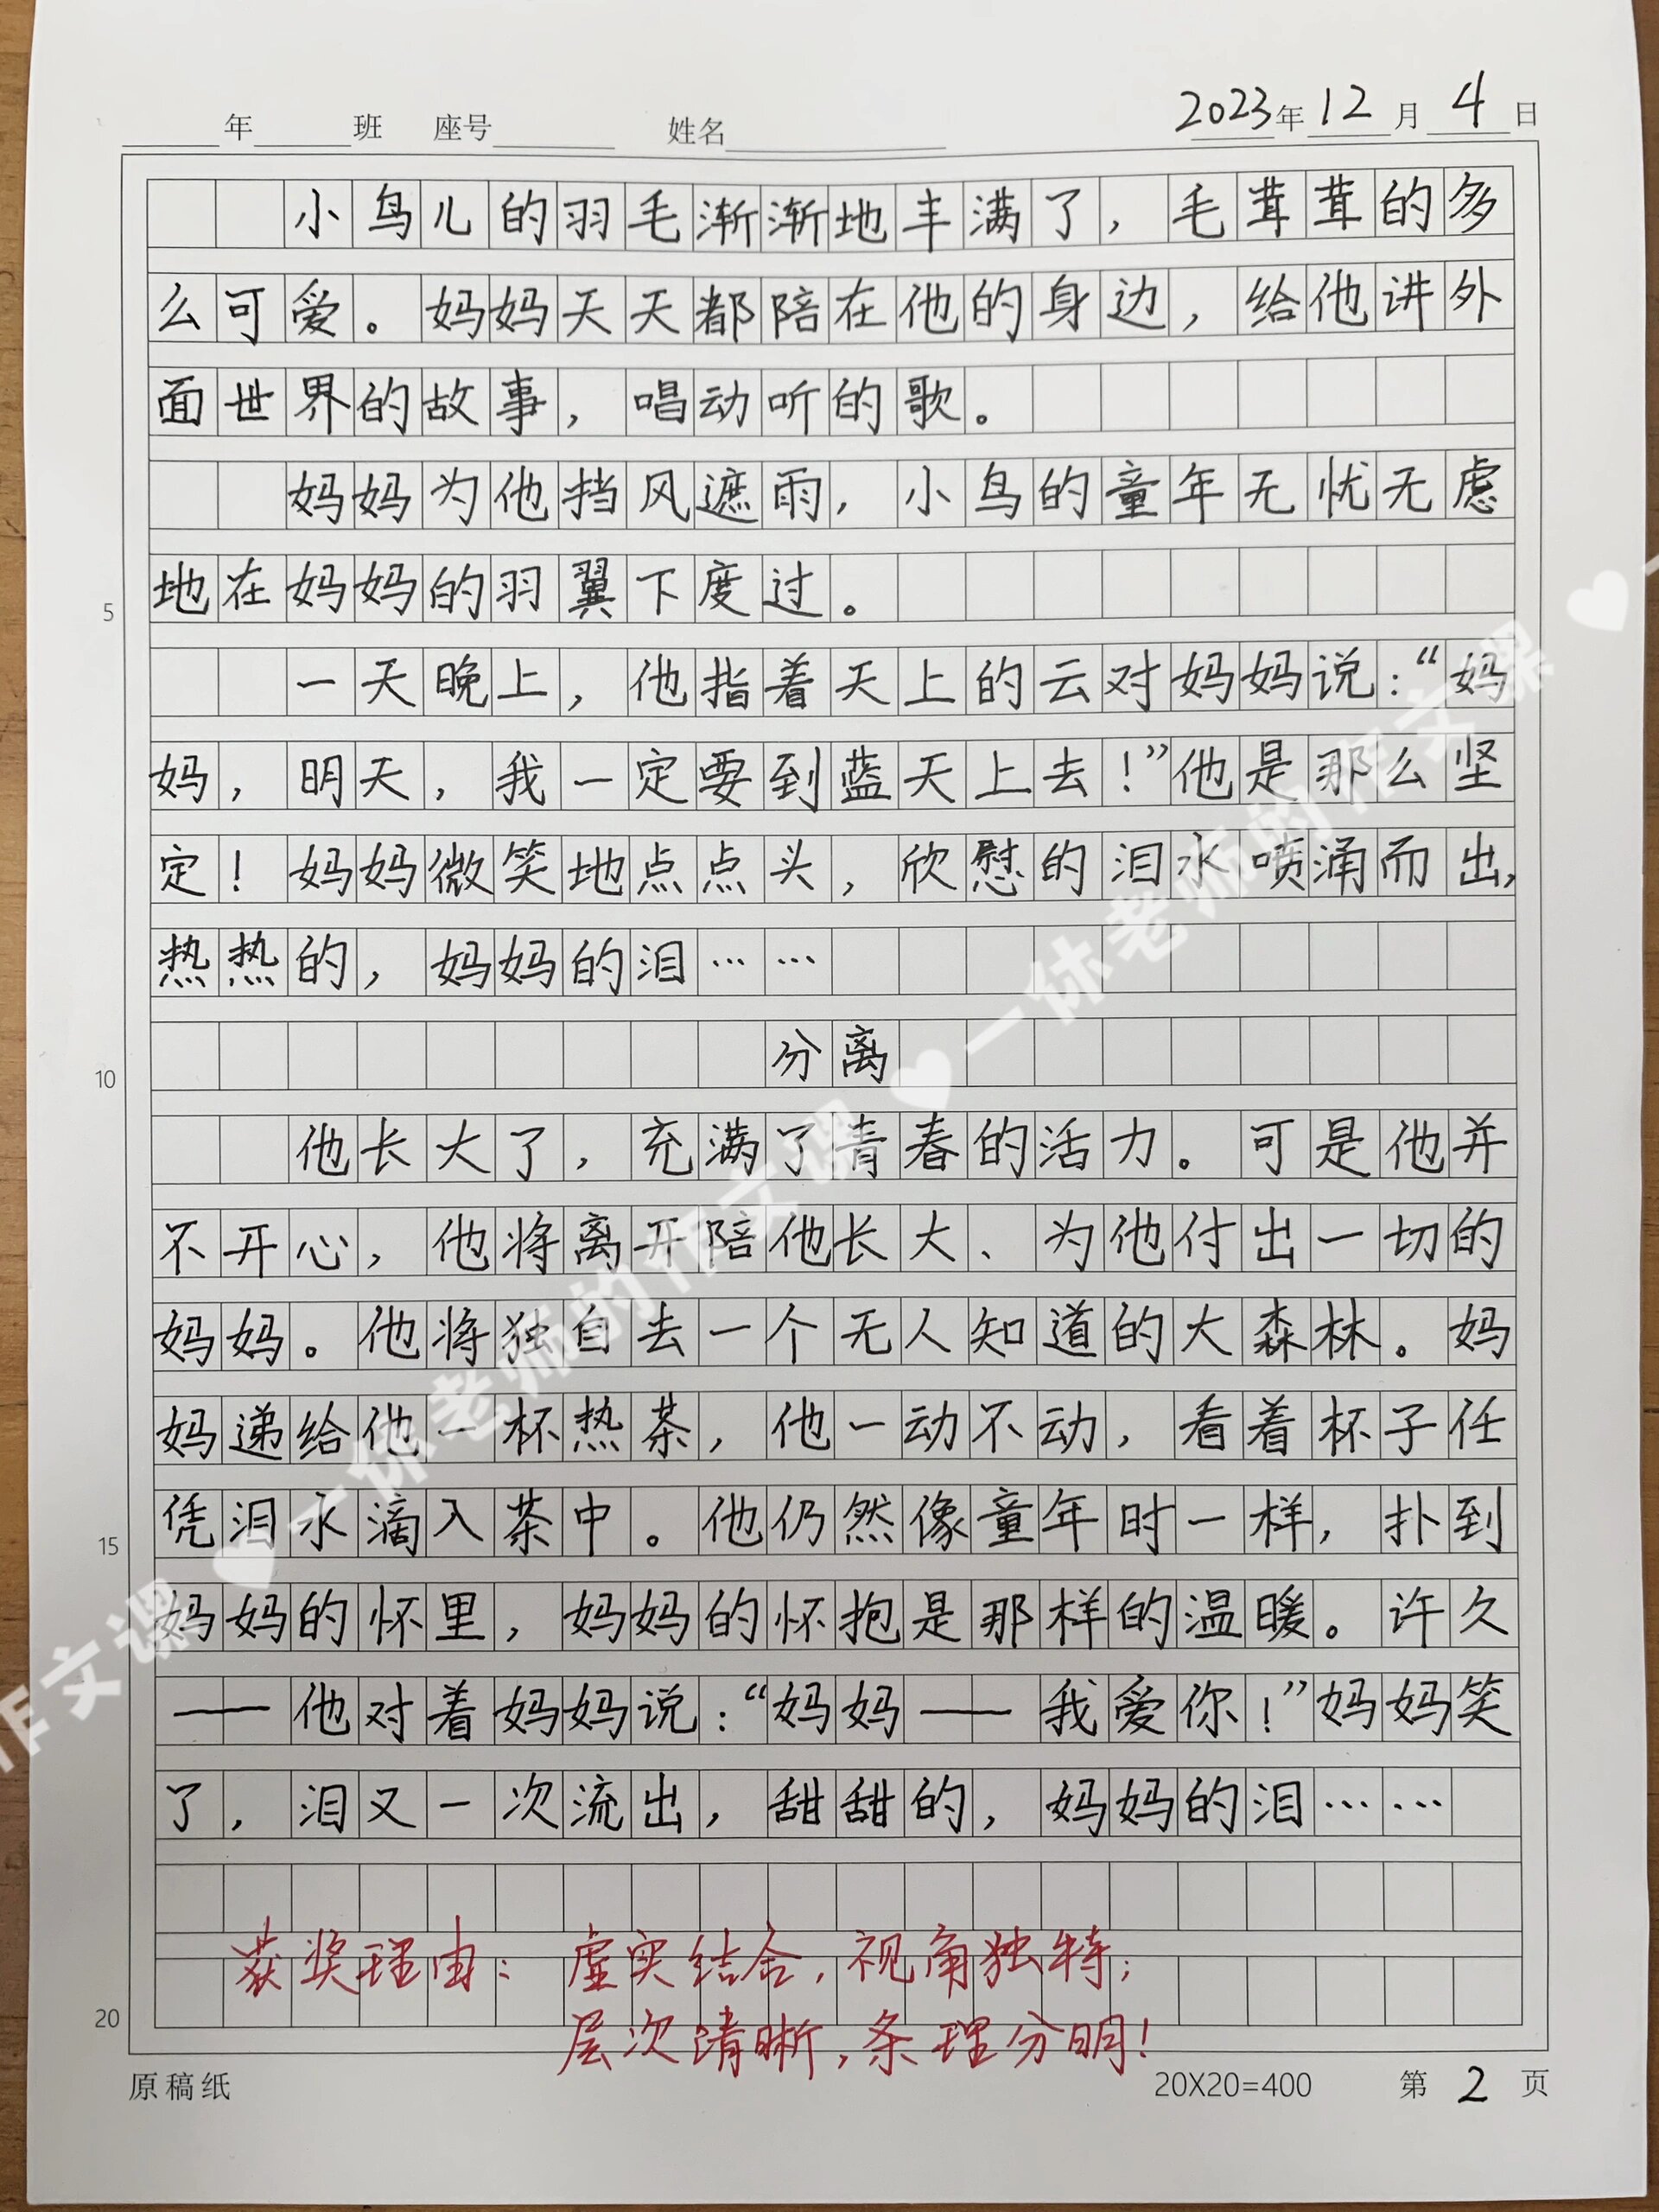 ____年____班 座号____ 姓名____ 2023年12月4日
小鸟儿的羽毛渐渐地丰满了，毛茸茸的多
么可爱。妈妈天天都陪在他的身边，给他讲外
面世界的故事，唱动听的歌。
妈妈为他挡风遮雨，小鸟的童年无忧无虑
地在妈妈的羽翼下度过。
5
一天晚上，他指着天上的云对妈妈说：“妈
妈，明天，我一定要到蓝天上去！”他是那么坚
定！妈妈微笑地点点头，欣慰的泪水喷涌而出，
热热的，妈妈的泪……
分离
10
他长大了，充满了青春的活力。可是他并
不开心，他将离开陪他长大、为他付出一切的
妈妈。他将独自去一个无人知道的大森林。妈
妈递给他一杯热茶，他一动不动，看着杯子任
凭泪水滴入茶中。他仍然像童年时一样，扑到
15
妈妈的怀里，妈妈的怀抱是那样的温暖。许久
——他对着妈妈说：“妈妈——我爱你！”妈妈笑
了，泪又一次流出，甜甜的，妈妈的泪……
获奖理由：虚实结合，视角独特；
20
层次清晰，条理分明！
原稿纸 20X20=400 第2页
一休老师的作文课♥一休老师的作文课♥
作文课